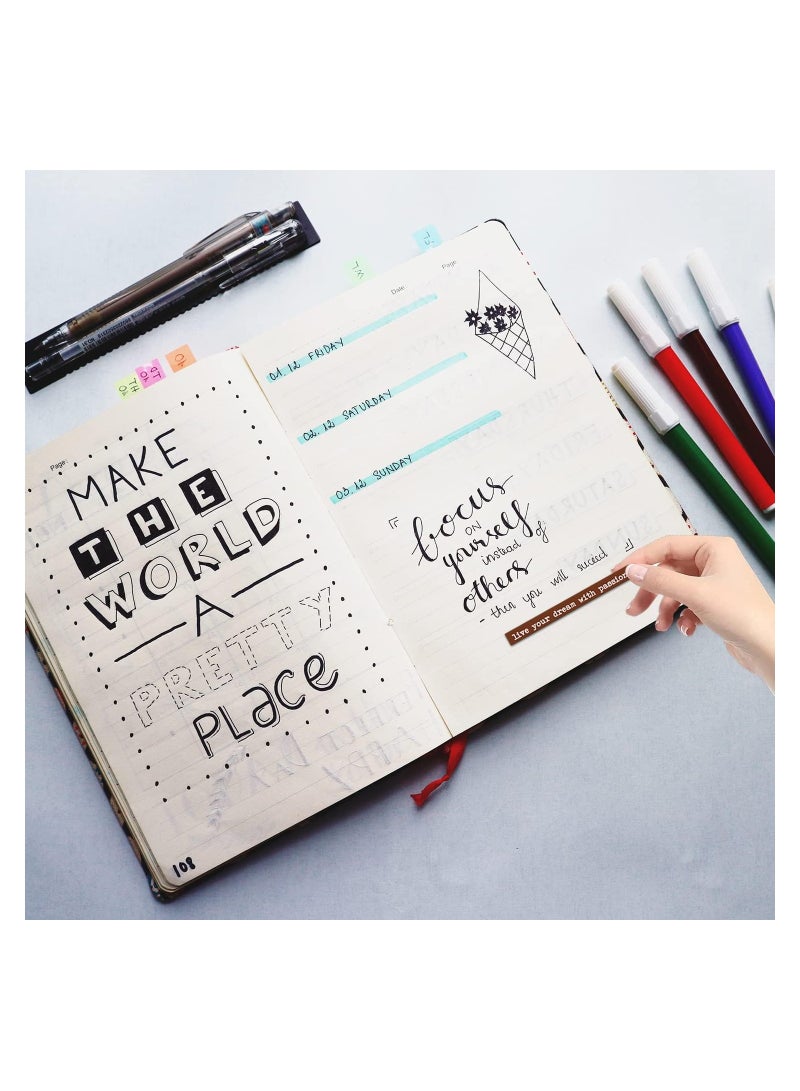 Page:
MAKE
THE
WORLD
A
PRETTY
PLACE
108
Date
Page
01.12 FRIDAY
02.12 SATURDAY
03.12 SUNDAY
focus
ON
yourself
instead of
others
- then you will succeed
live your dream with passion